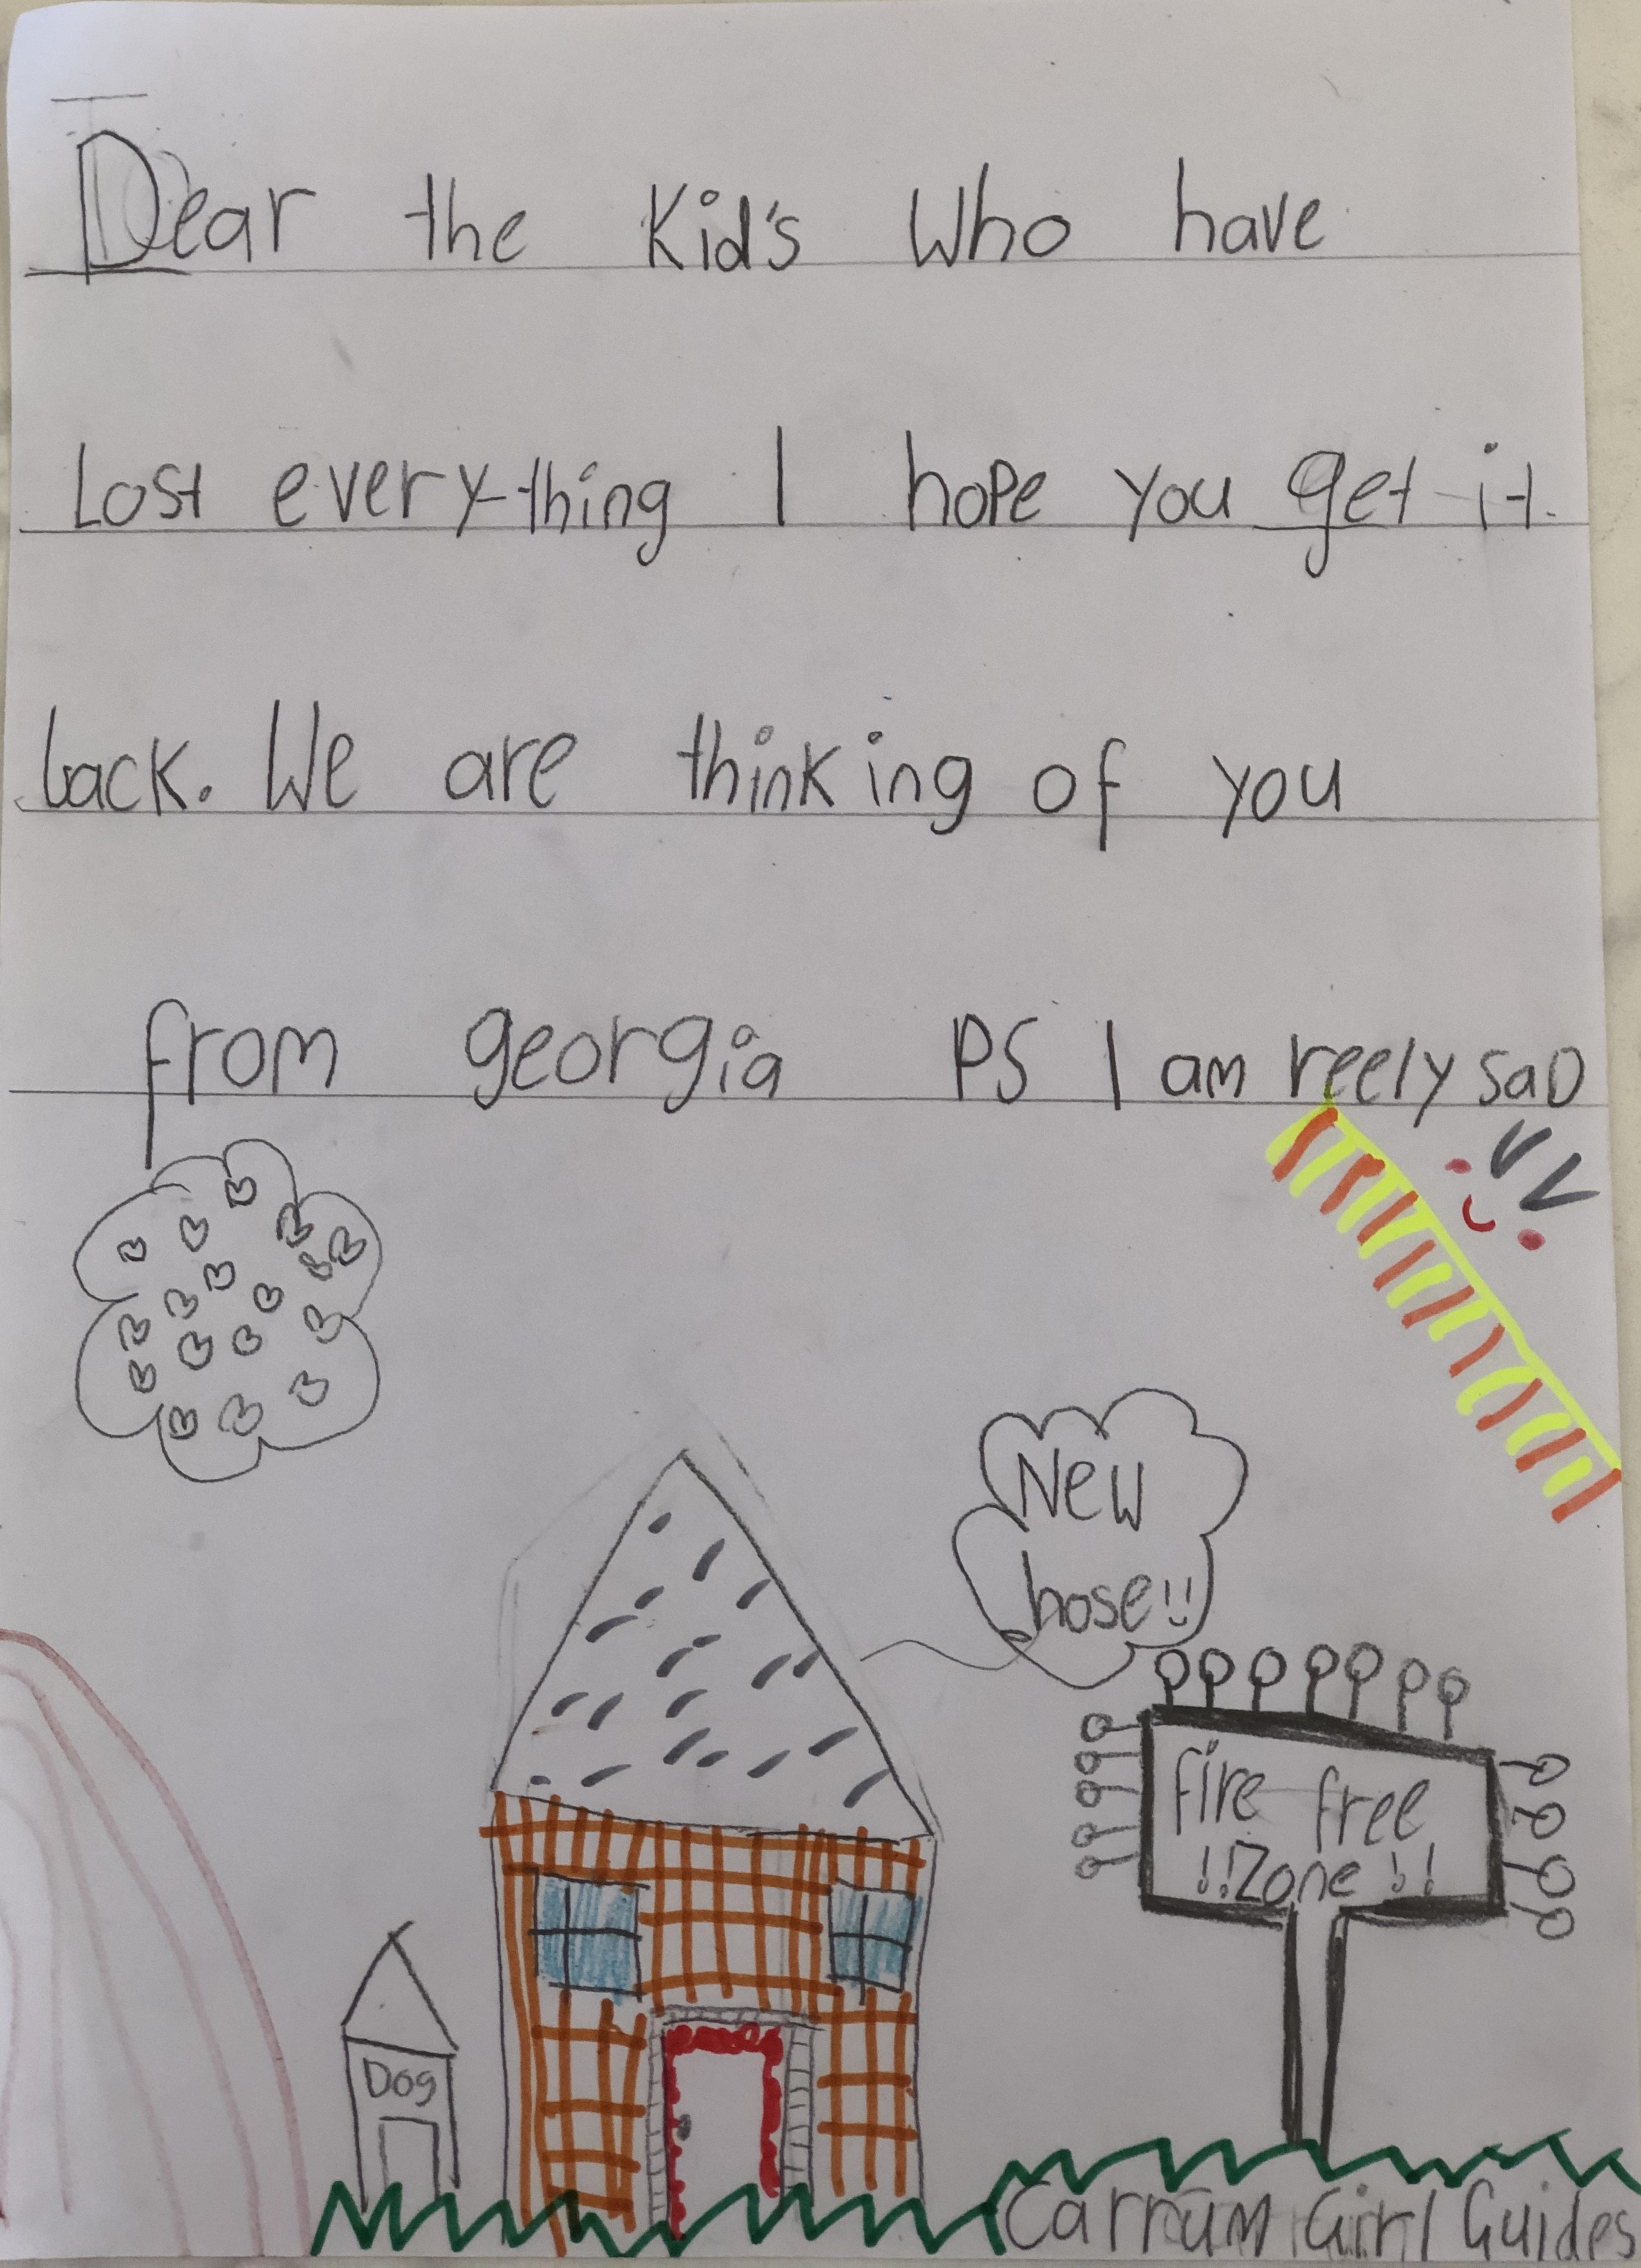 Dear the Kid's Who have
Lost everything I hope you get it
back. We are thinking of you
from georgia PS I am reely saD
New
hose!!
fire free
!!Zone!!
Dog
Carrum Girl Guides